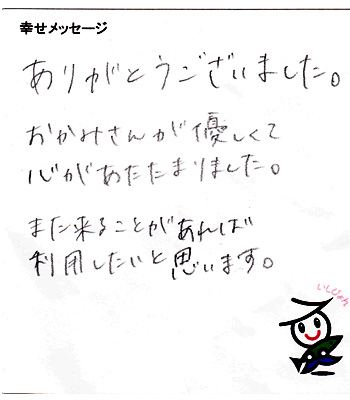 幸せメッセージ
ありがとうございました。
おかみさんが優しくて
心があたたまりました。
また来ることがあれば
利用したいと思います。